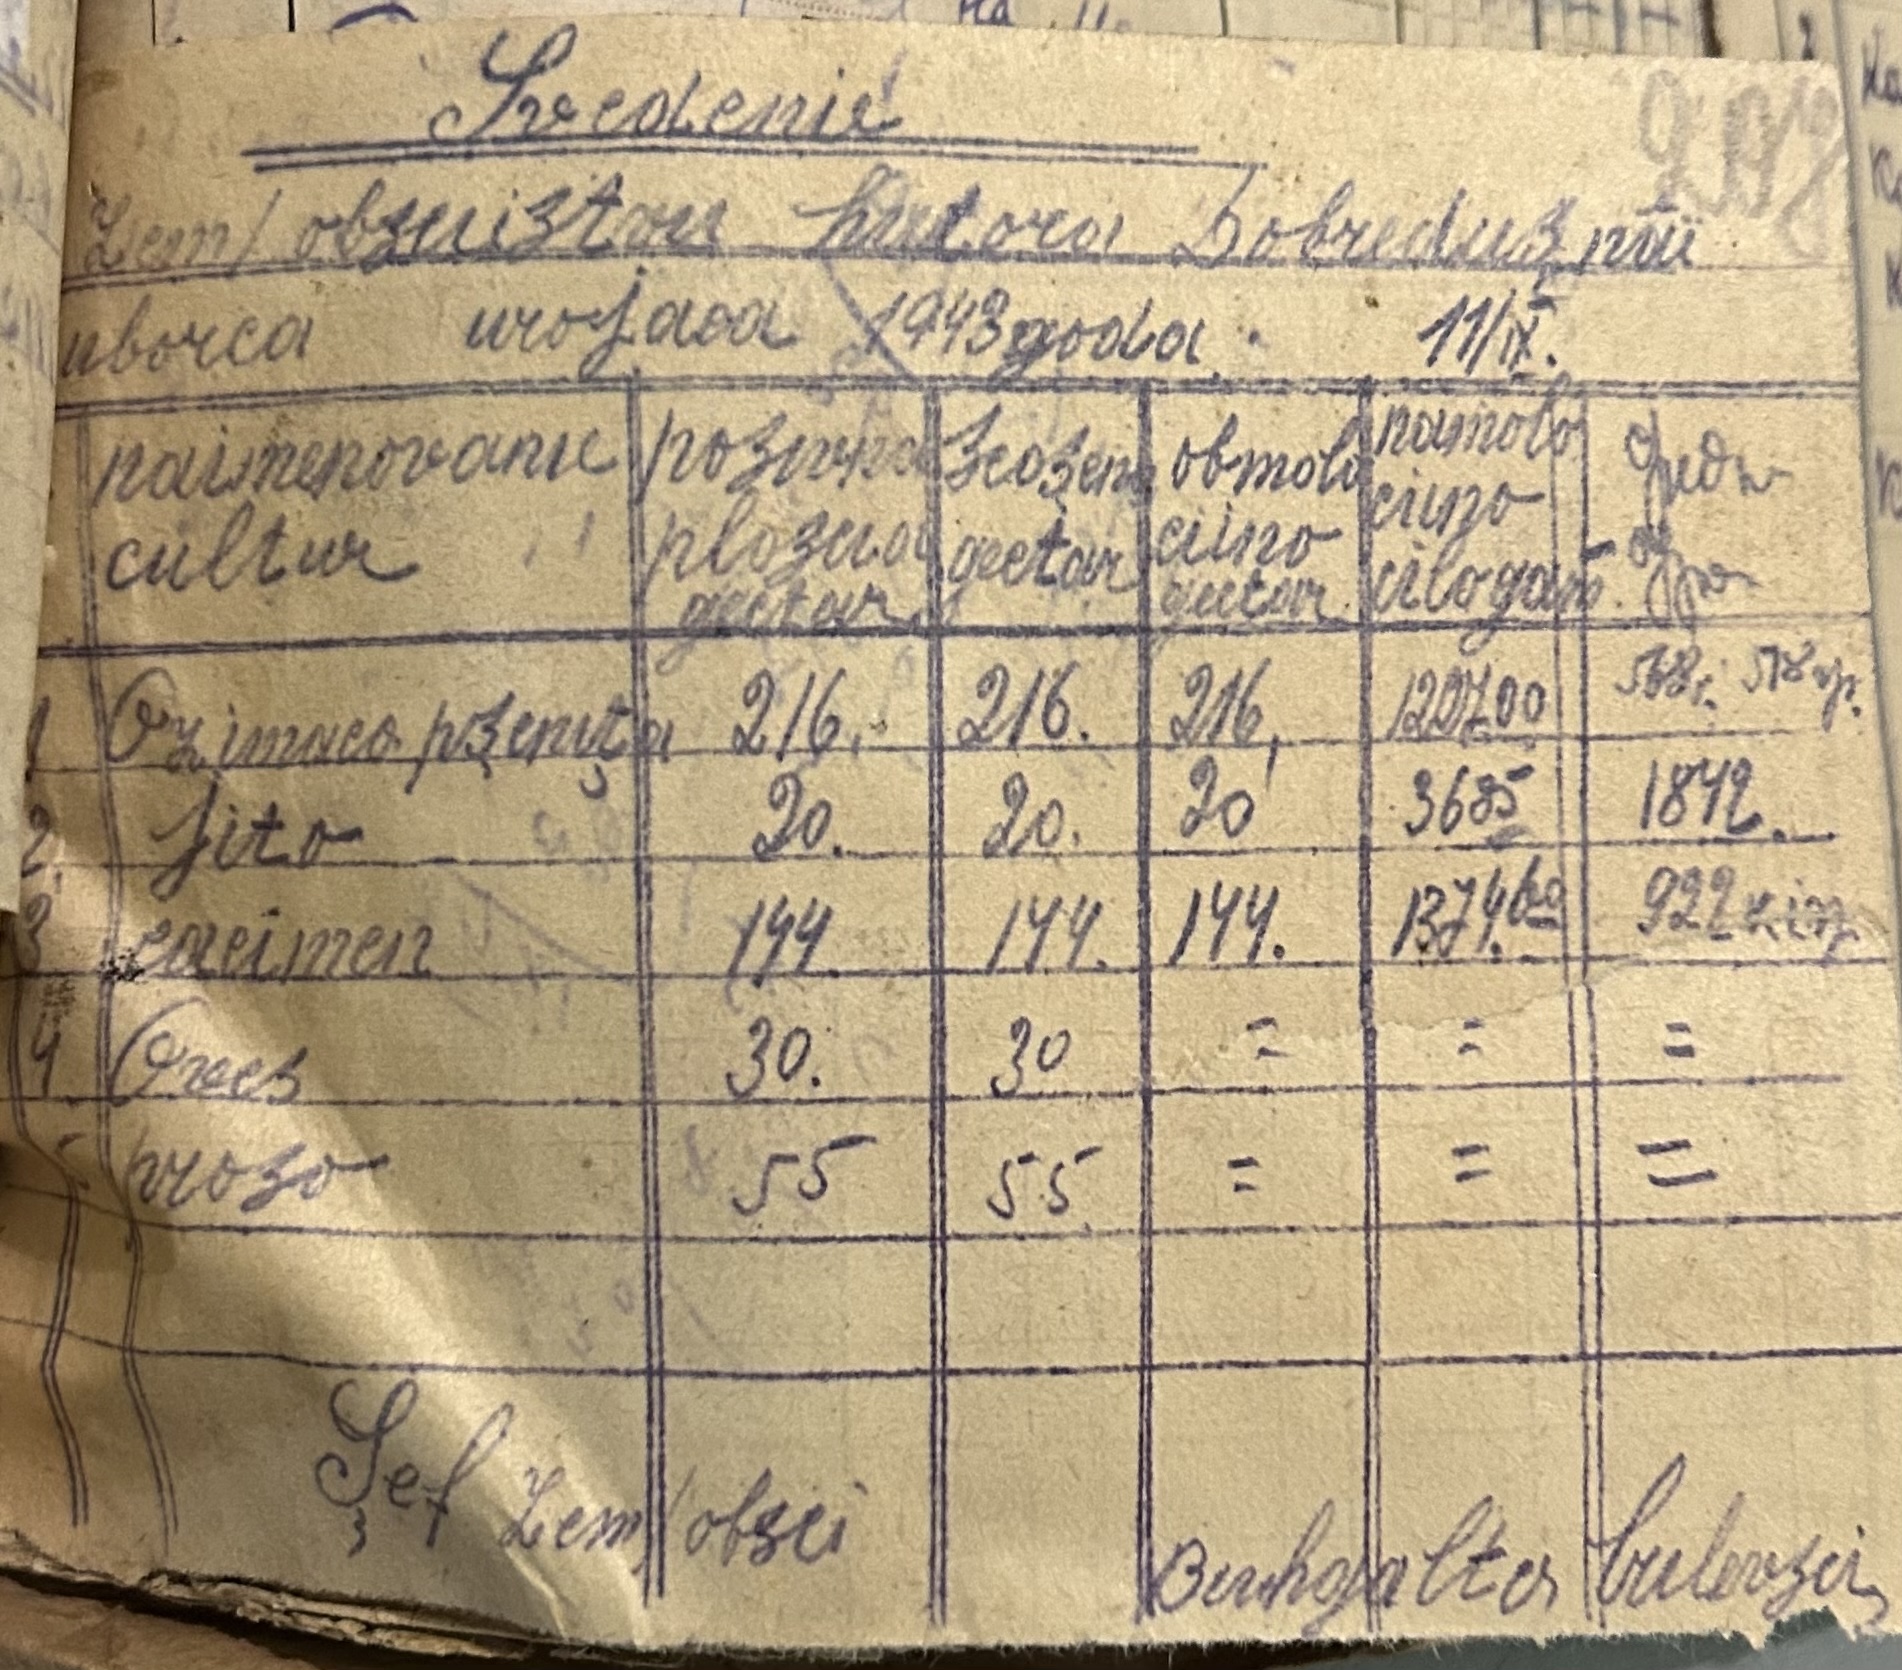 Svedenie
298
Zem/ obsuistau hutora Dobreduș nîii
uborca urojaea 1943 goda. 11/IX.
naimenovanie cultur
pozivna ploscead gectar
Scoșeno gectar
obmolo ciino gectar
namolo ciino cilogam
1 Ozimaea pșenița 216. 216. 216, 120700
2. jito 20. 20. 20 3685 1842.
3 eacimen 144 144. 144. 1374600 922 kim
4 Oves 30. 30 = = =
5 prozo 55 55 = = =
Șef Zem/obsci Buhgalter